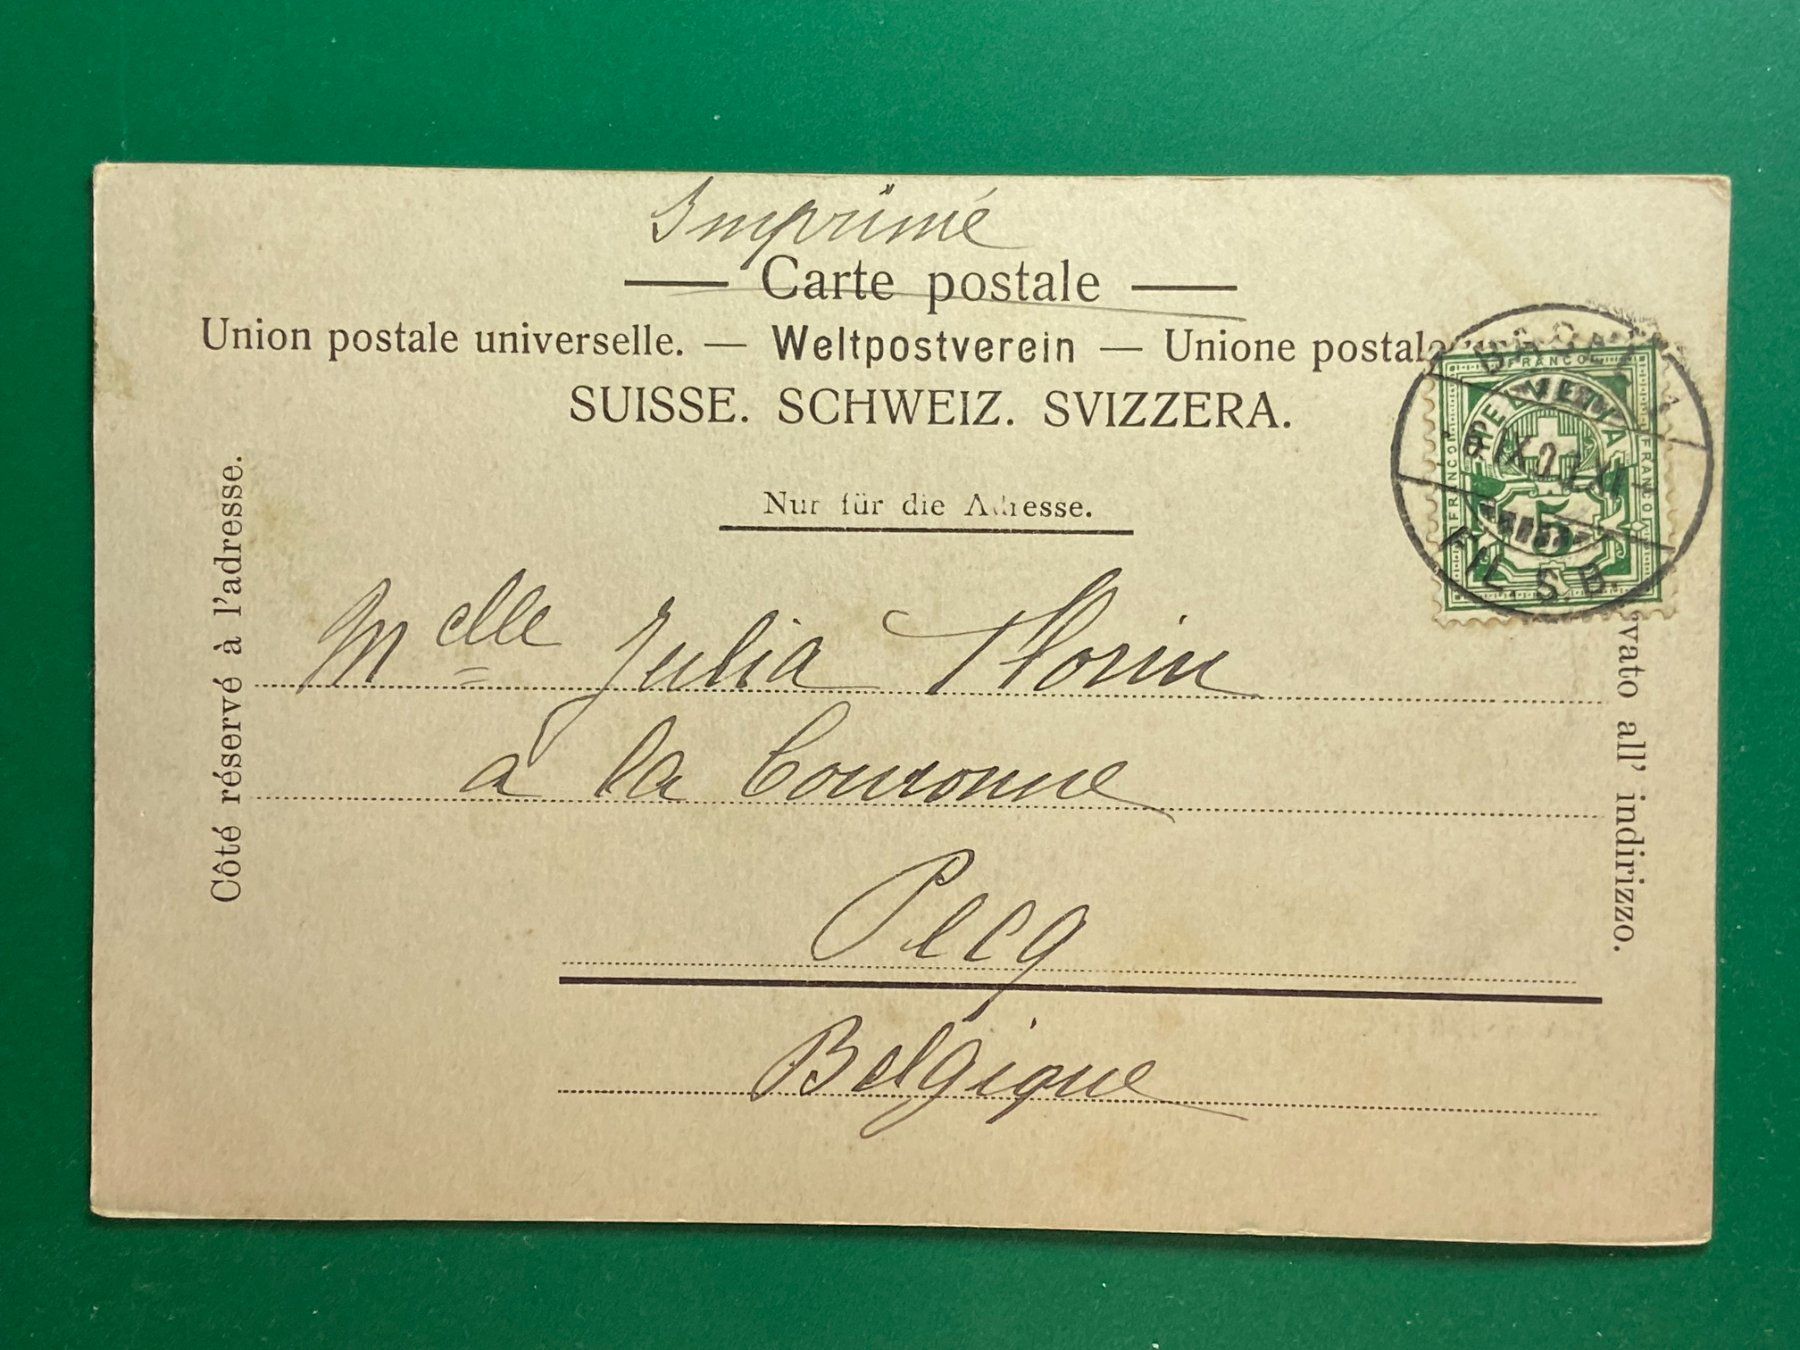 Imprimé
Carte postale
Union postale universelle. — Weltpostverein — Unione postale
SUISSE. SCHWEIZ. SVIZZERA.
Nur für die Adresse.
Côté réservé à l'adresse.
Melle Julia Florin
à la Couronne
Pecq
Belgique
vato all' indirizzo.
FRANCO
HELVETIA
FRANCO
FRANCO
5
BASEL
IX.0
XI
FIL. S.B.